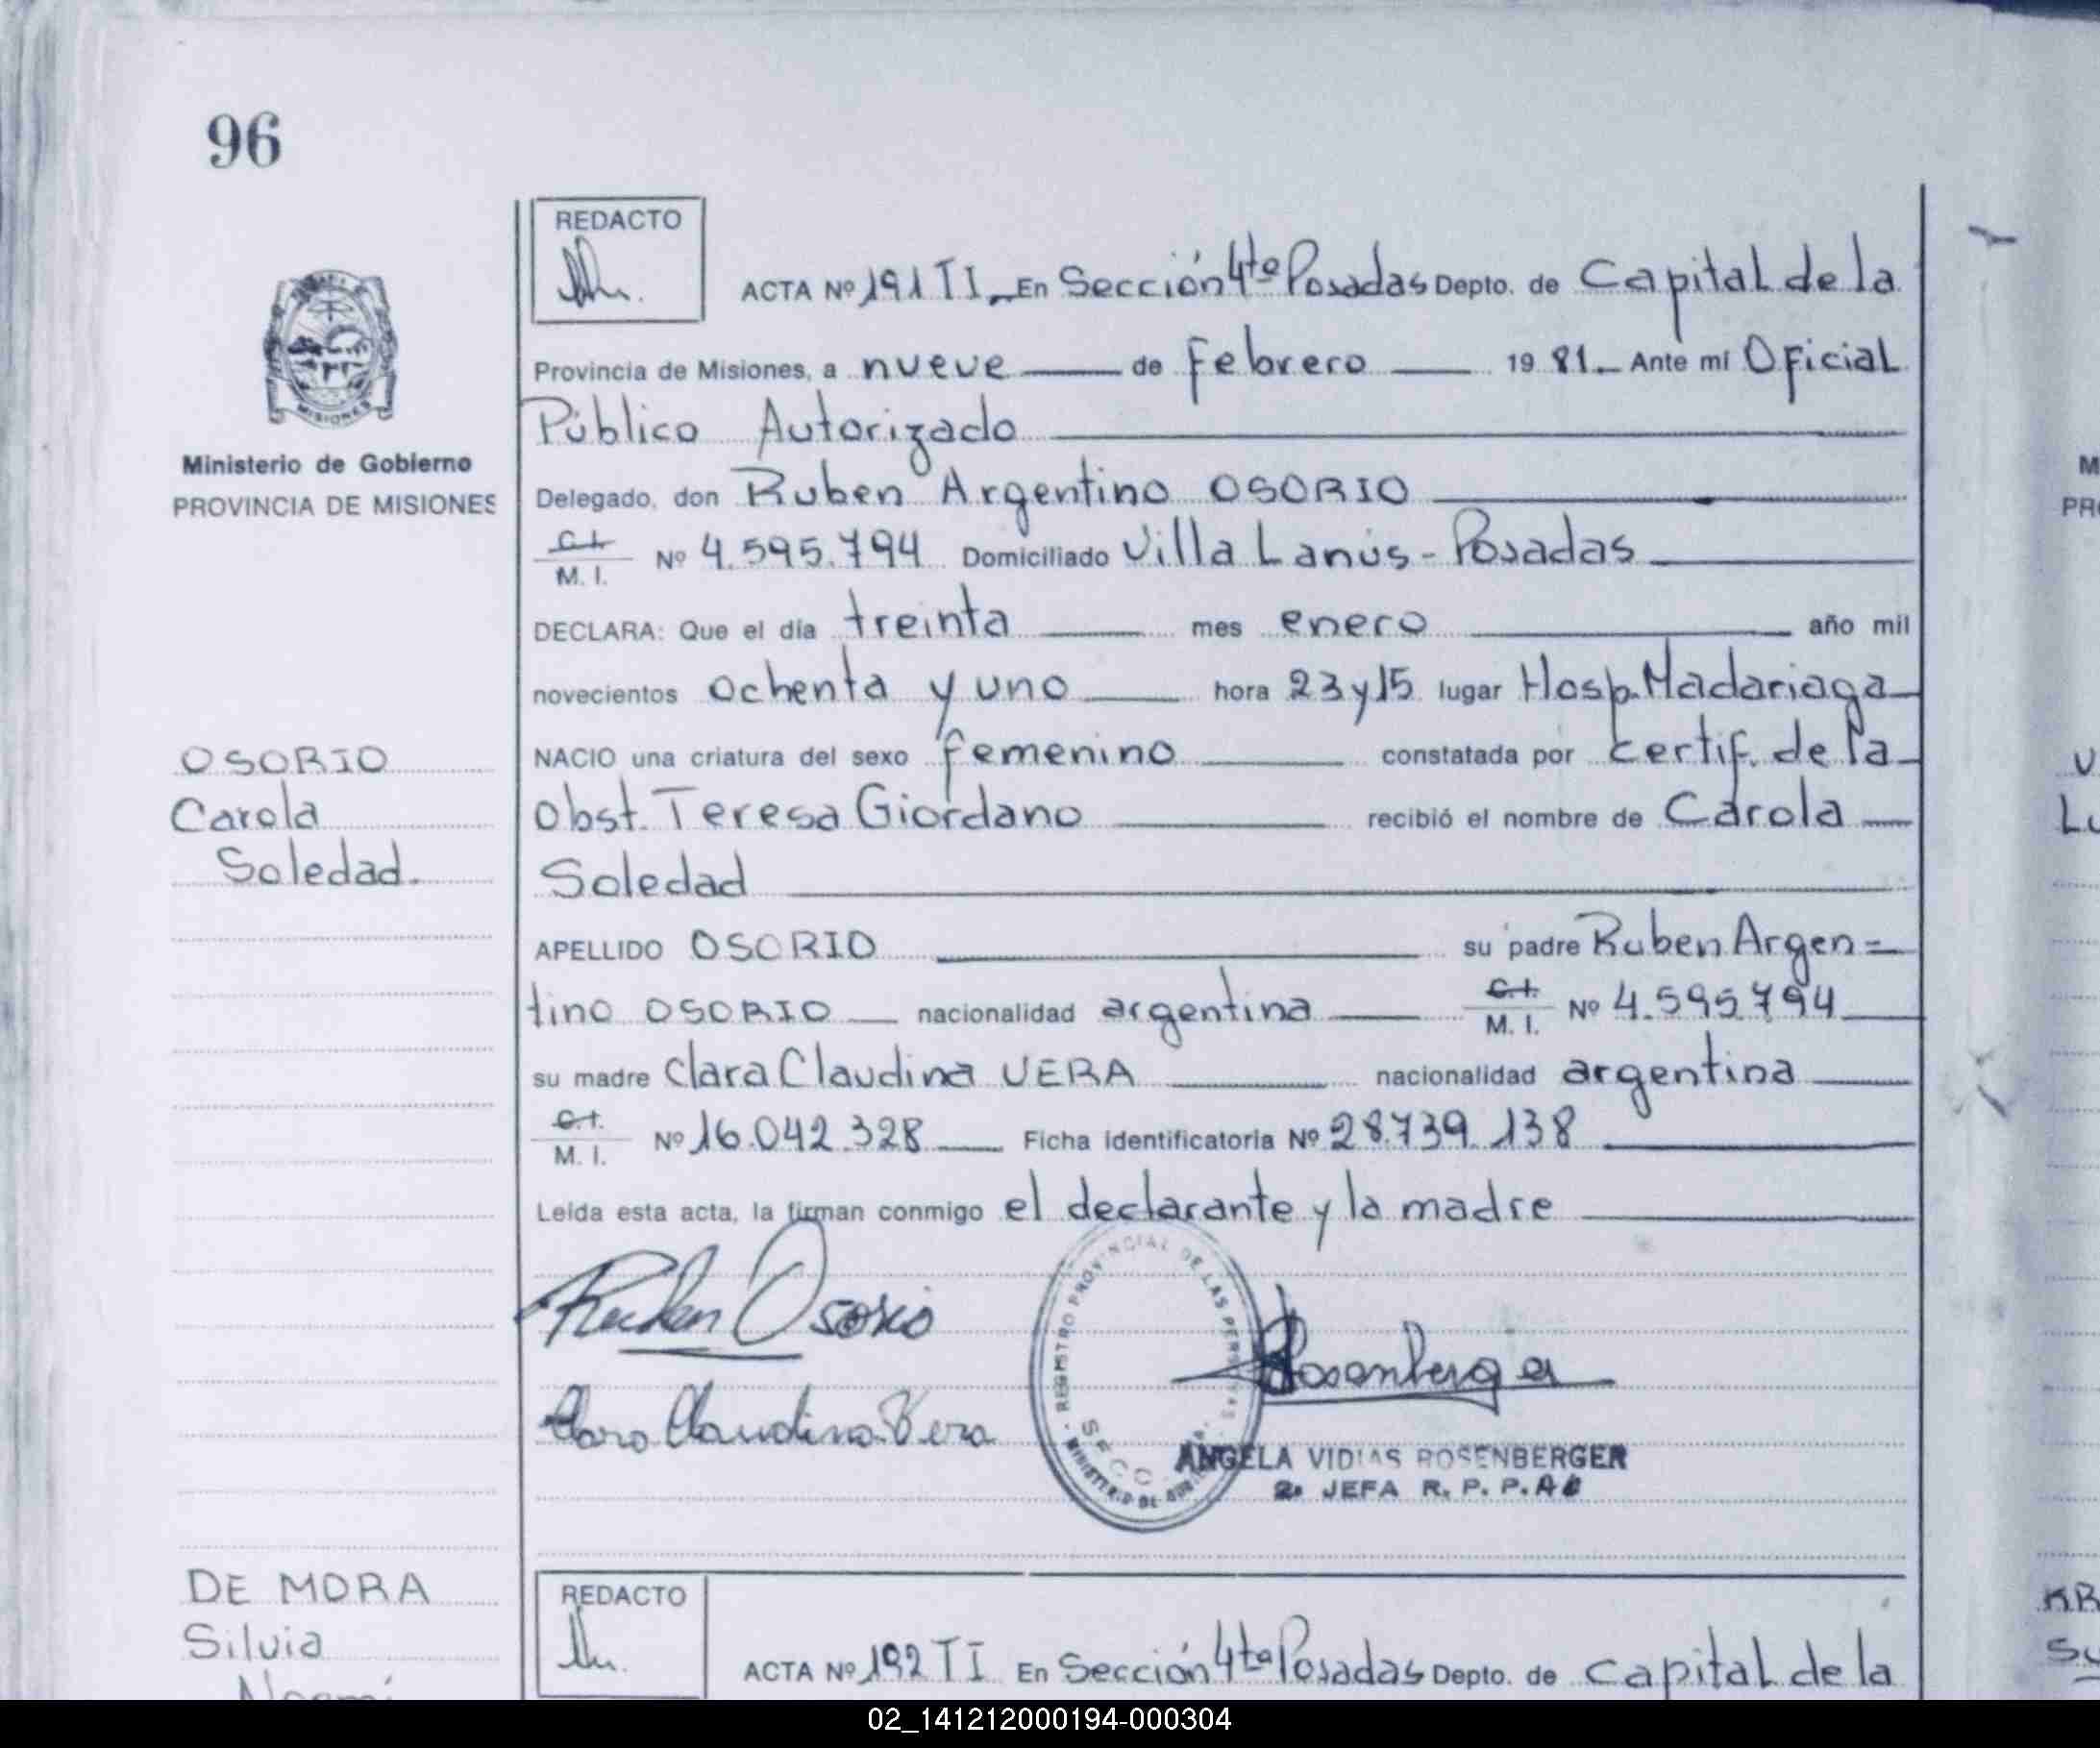 96
REDACTO
ACTA Nº 191 TI En Sección 4ta Posadas Depto. de Capital de la
Provincia de Misiones, a nueve de Febrero 1981. Ante mí Oficial
Público Autorizado
Delegado, don Ruben Argentino OSORIO
C.I. M. I. Nº 4.595.794 Domiciliado Villa Lanús - Posadas
DECLARA: Que el día treinta mes enero año mil
novecientos ochenta y uno hora 23 y 15 lugar Hosp. Madariaga
NACIO una criatura del sexo femenino constatada por certif. de la
obst. Teresa Giordano recibió el nombre de Carola
Soledad
APELLIDO OSORIO su padre Ruben Argen=
tino OSORIO nacionalidad argentina C.I. M. I. Nº 4.595.794
su madre Clara Claudina VERA nacionalidad argentina
C.I. M. I. Nº 16.042.328 Ficha identificatoria Nº 28.739.138
Leída esta acta, la firman conmigo el declarante y la madre
Ruben Osorio
Rosenberger
Clara Claudina Vera
REGISTRO PROVINCIAL DE LAS PERSONAS
SECC.
MINISTERIO DE
ANGELA VIDIAS ROSENBERGER
2ª JEFA R. P. P.
MISIONES
Ministerio de Gobierno
PROVINCIA DE MISIONES
OSORIO
Carola
Soledad.
DE MORA
Silvia
Noemí
REDACTO
ACTA Nº 192 TI En Sección 4ta Posadas Depto. de capital de la
M
PR
V
Lu
KR
Su
02_141212000194-000304